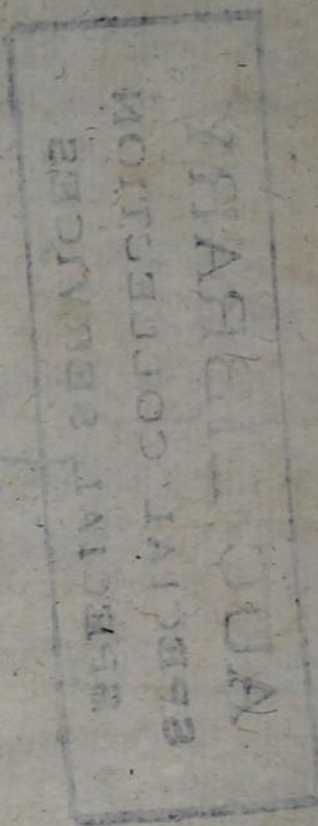 AUC LIBRARY
SPECIAL COLLECTION
SPECIAL SERVICES